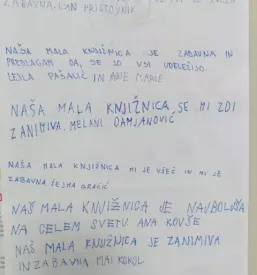 ZABAVNA. LUN PRISTOVNIK
NAŠA MALA KNJIŽNICA JE ZABAVNA IN
PREDLAGAM DA, SE JO VSI UDELEŽIJO.
LEJLA PAŠALIĆ IN ANE MARIE
NAŠA MALA KNJIŽNICA, SE MI ZDI
ZANIMIVA. MELANI DAMJANOVIĆ
NAŠA MALA KNJIŽNICA MI JE VŠEČ IN MI JE
ZABAVNA ŠEJMA GRAČIĆ
NAŠ MALA KNJIŽNICA JE NAJBOLJŠA
NA CELEM SVETU. ANA KOVŠE
NAŠ MALA KNJIŽNICA JE ZANIMIVA
IN ZABAVNA MAI KOKOL